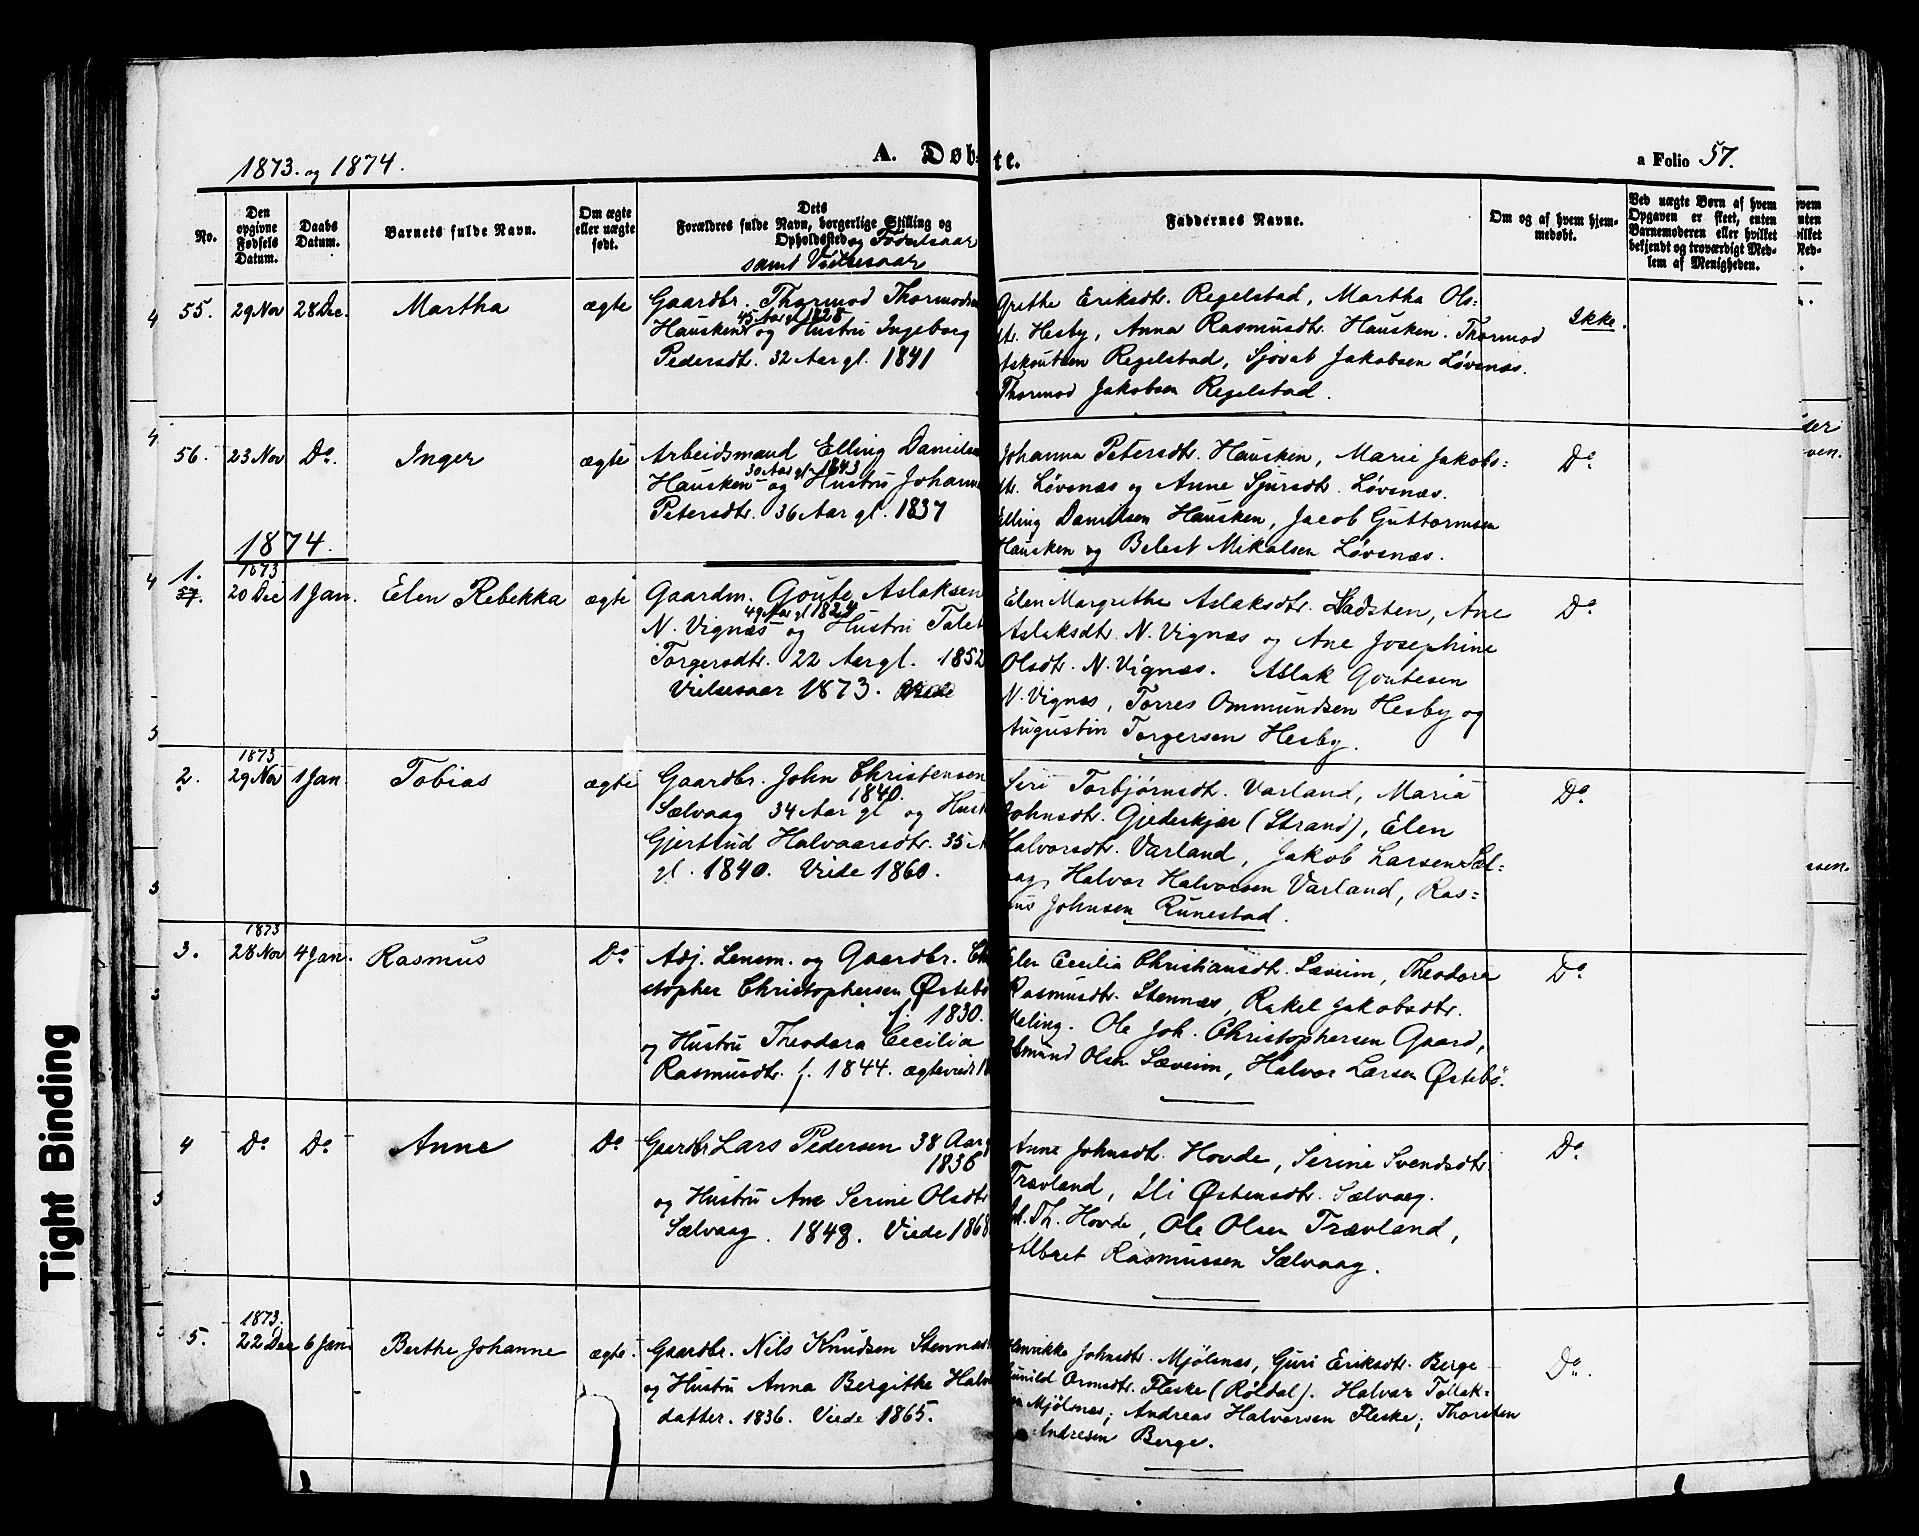 1873. og 1874.
A. Døbte.
a Folio 57.
No.
Den opgivne Fødsels Datum.
Daabs Datum.
Barnets fulde Navn.
Om ægte eller uægte født.
Dets Forældres fulde Navn, borgerlige Stilling og Opholdssted og Fødselsaar samt Vielsesaar
Faddernes Navne.
Om og af hvem hjemmedøbt.
Ved uægte Børn af hvem Opgaven er skeet, enten Barnemoderen eller hvilket bekjendt og troværdigt Medlem af Menigheden.
55. 29 Nov 28 Dec. Martha ægte
Gaardbr. Thormod Thormods
45 Aar gl 1828
Hausken og Hustru Ingeborg
Pedersdtr. 32 Aar gl. 1841
Grethe Eriksdtr. Regelstad, Martha Ols-
dtr. Hesby, Anna Rasmusdtr. Hausken. Thormod
Regelstad, Jakobsen Løvsnæs.
Thormod Jakobsen Regelstad.
Ikke.
56. 23 Nov Do. Inger ægte
Arbeidsmand Elling Daniels
30 Aar gl. 1843
Hausken og Hustru Johann
Petersdtr. 36 Aar gl. 1837
Johanna Petersdtr. Hausken, Marie Jakobs=
dtr. Løvsnæs og Anne Sjursdtr. Løvsnæs.
Elling Danielsen Hausken, Jacob Guttormsen
Hausken og Mikalsen Løvsnæs.
Do
1874.
1. 57. 1873 20 Dec 1 Jan. Elen Rebekka ægte
Gaardm. Goute Aslaksen
49 Aar gl 1824
N. Vignæs og Hustru Talet
Torgersdtr. 22 Aar gl. 1852
Vielsesaar 1873.
Elen Margrethe Aslaksdtr. Ladsten, Ane
Aslaksdtr. N. Vignæs og Ane Josephine
Olsdt. N. Vignæs. Aslak Goutesen
N. Vignæs, Torres Ommundsen Hesby og
Augustin Torgersen Hesby.
Do
2. 1873 29 Nov 1 Jan Tobias ægte
Gaardbr. John Christensen
1840.
Sælvaag 34 Aar gl og Hust
Gjertrud Halvaarsdtr. 35 A
gl. 1840. Viede 1860.
Siri Torbjørnsdt. Varland, Maria
Johnsdtr. Gjedeskjær (Strand), Elen
Halvorsdtr. Varland, Jakob Larsen Sæl-
aag, Halvor Halvorsen Varland, Ras=
mus Johnsen Runestad.
Do
3. 1873 28 Nov 4 Jan. Rasmus Do
Adj. Lensm. og Gaardbr. Ch
stopher Christophersen Østebø
f. 1830.
og Hustru Theodora Cecilia
Rasmusdtr. f. 1844. ægteviede 1
Elen Cecilia Christiansdt. Sæveim, Theodora
Rasmusdtr. Stennæs, Rakel Jakobsdtr.
Meling. Ole Joh. Christophersen Gaard,
Asmund Olsen Sæveim, Halvor Larsen Østebö.
Do
4 Do Do. Anne Do
Gaardbr Lars Pedersen 38 Aar g
1836
og Hustru Ane Serine Olsdtr
Sælvaag. 1848. Viede 1868
Anne Johnsdt. Hovde, Serine Svendsdtr.
Trævland, Siri Østensdtr. Sælvaag.
Th. Hovde, Ole Olsen Trævland,
Albret Rasmussen Sælvaag.
Do
5. 1873. 22 Dec 6 Jan Berthe Johanne ægte.
Gaardbr. Nils Knudsen Stennæs
og Hustru Anna Bergitke Halv
datter. 1836. Viede 1865.
Henrikke Johnsdt. Mjølsnæs, Guri Eriksdtr. Berge
Gunild Ormsdtr. Fleske (Röldal). Halvar Tollak-
sen Mjølsnæs; Andreas Halvorsen Fleske; Thorsten
Andresen Berge.
Do.
Tight Binding